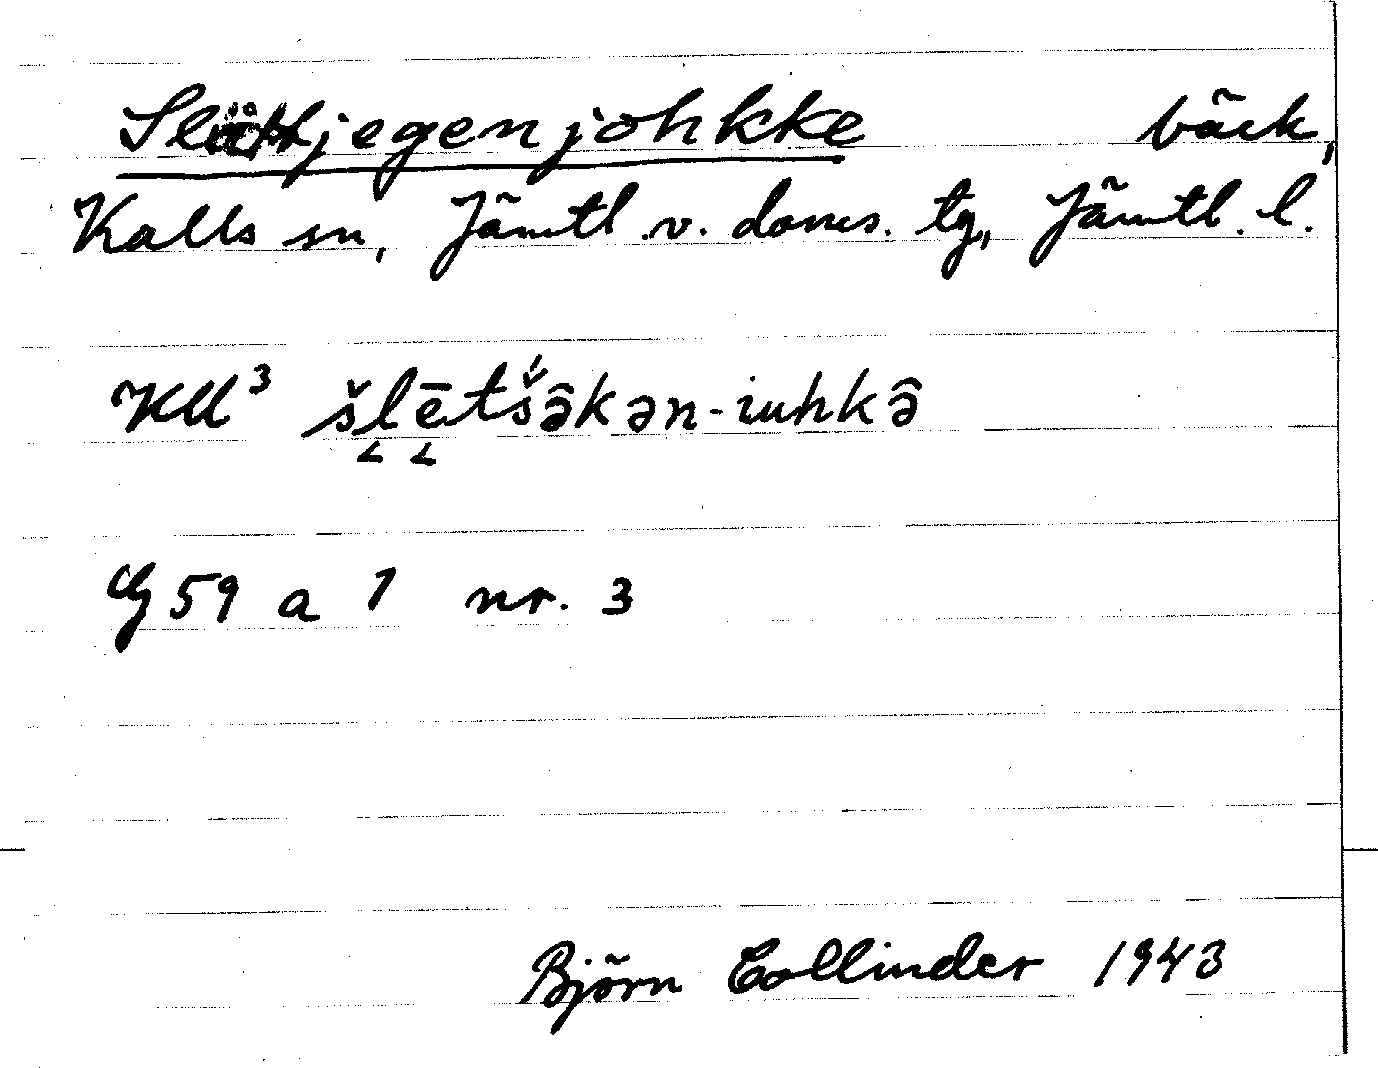 Slättjegenjohkke bäck,
Kalls sn, Jämtl. v. doms. tg, Jämtl. l.
KU³ šlētšâkən-iuhkâ
G 59 a 1 nr. 3
Björn Collinder 1943